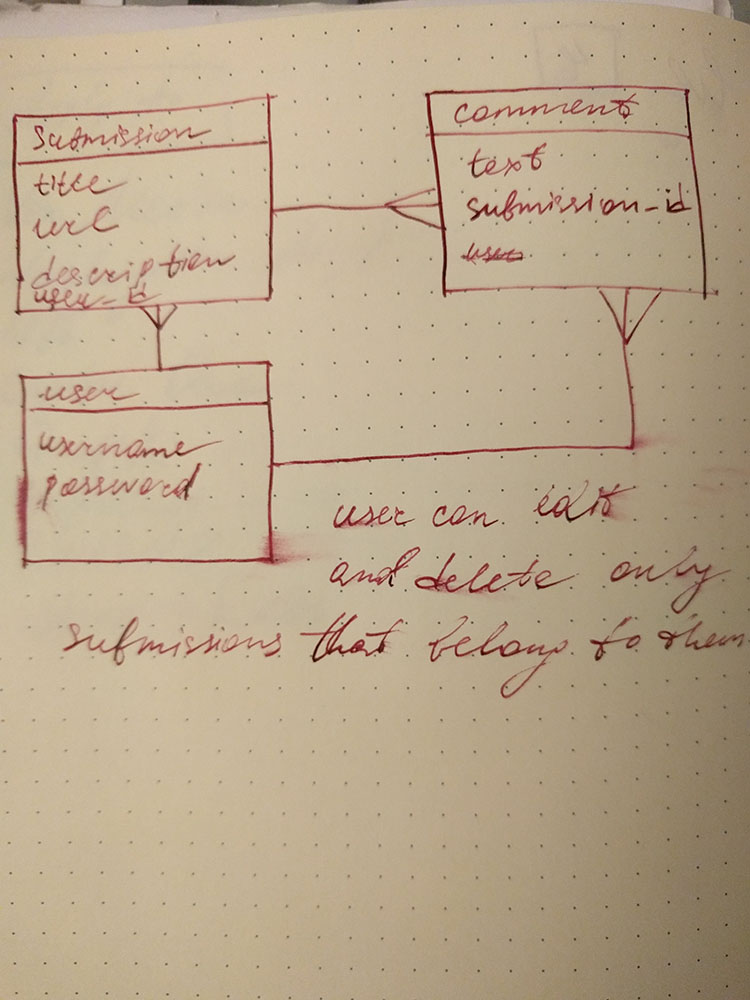 Submission
title
url
description
user_id
comments
text
submission_id
user
user
username
password
user can edit
and delete only
submissions that belong to them